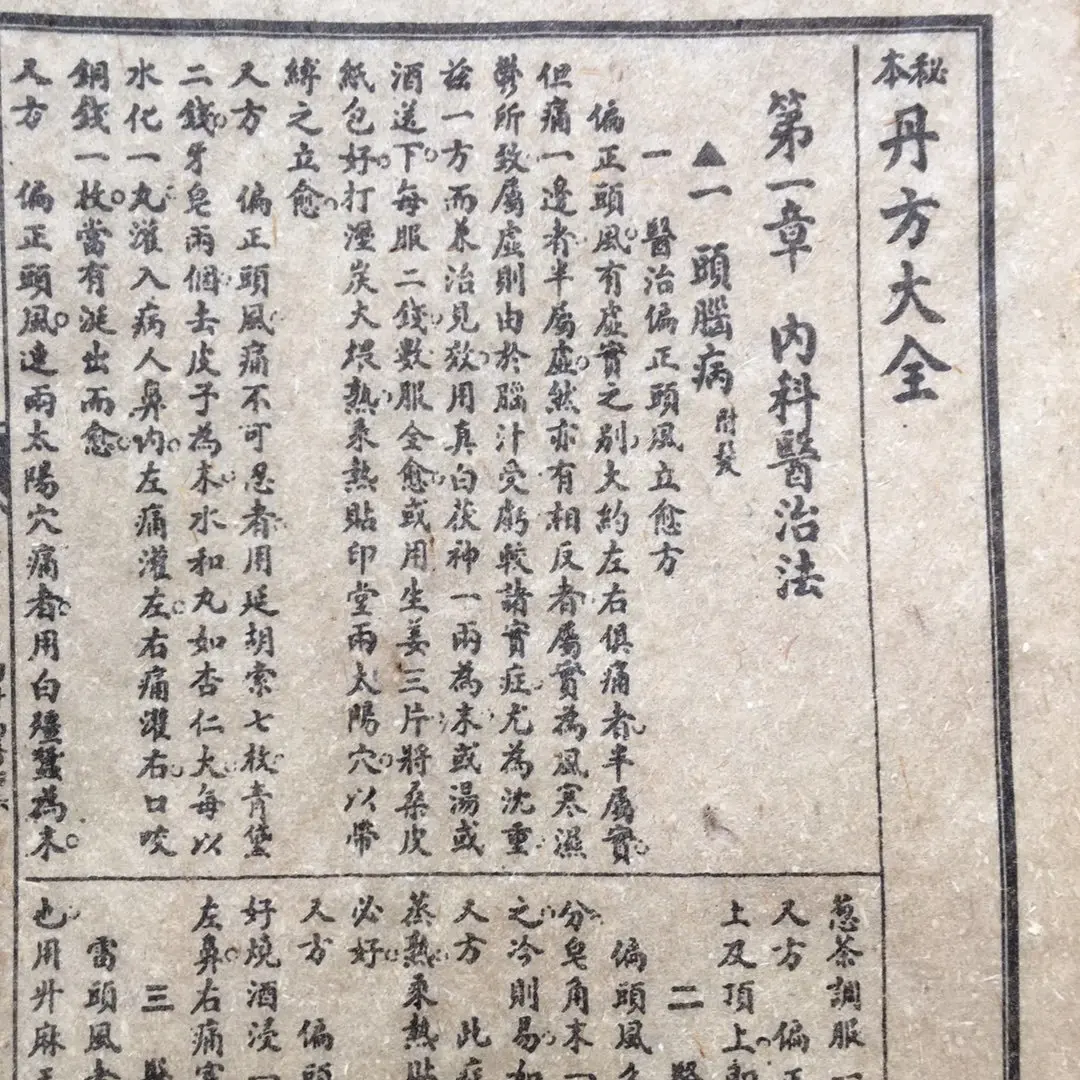 秘本
丹方大全
第一章　內科醫治法
▲一　頭腦病附髮
一　醫治偏正頭風立愈方
偏正頭風。有虛實之別。大約左右俱痛者。半屬實。
但痛一邊者。半屬虛。然亦有相反者。屬實為風寒濕
鬱所致。屬虛則由於腦汁受虧。較諸實症。尤為沈重。
茲一方而兼治見效。用真白茯神一兩為末。或湯或
酒送下。每服二錢。數服全愈。或用生姜三片。將桑皮
紙包好。打溼炭火煨熟。乘熱貼印堂兩太陽穴。以帶
縛之立愈。
又方　偏正頭風。痛不可忍者。用延胡索七枚。青黛
二錢。牙皂兩個。去皮子為末。水和丸如杏仁大。每以
水化一丸。灌入病人鼻內。左痛灌左。右痛躍右。口咬
銅錢一枚。當有涎出而愈。
又方　偏正頭風。連兩太陽穴痛者。用白殭蠶為末。
葱茶調服一
又方　偏正
上及頂上
二　醫
偏頭風
分。皂角末一
之。冷則易。如
又方　此症
蒸熟。乘熱貼
必好。
又方　偏頭
好燒酒浸一
左鼻。右痛塞
三　醫
雷頭風
也。用升麻